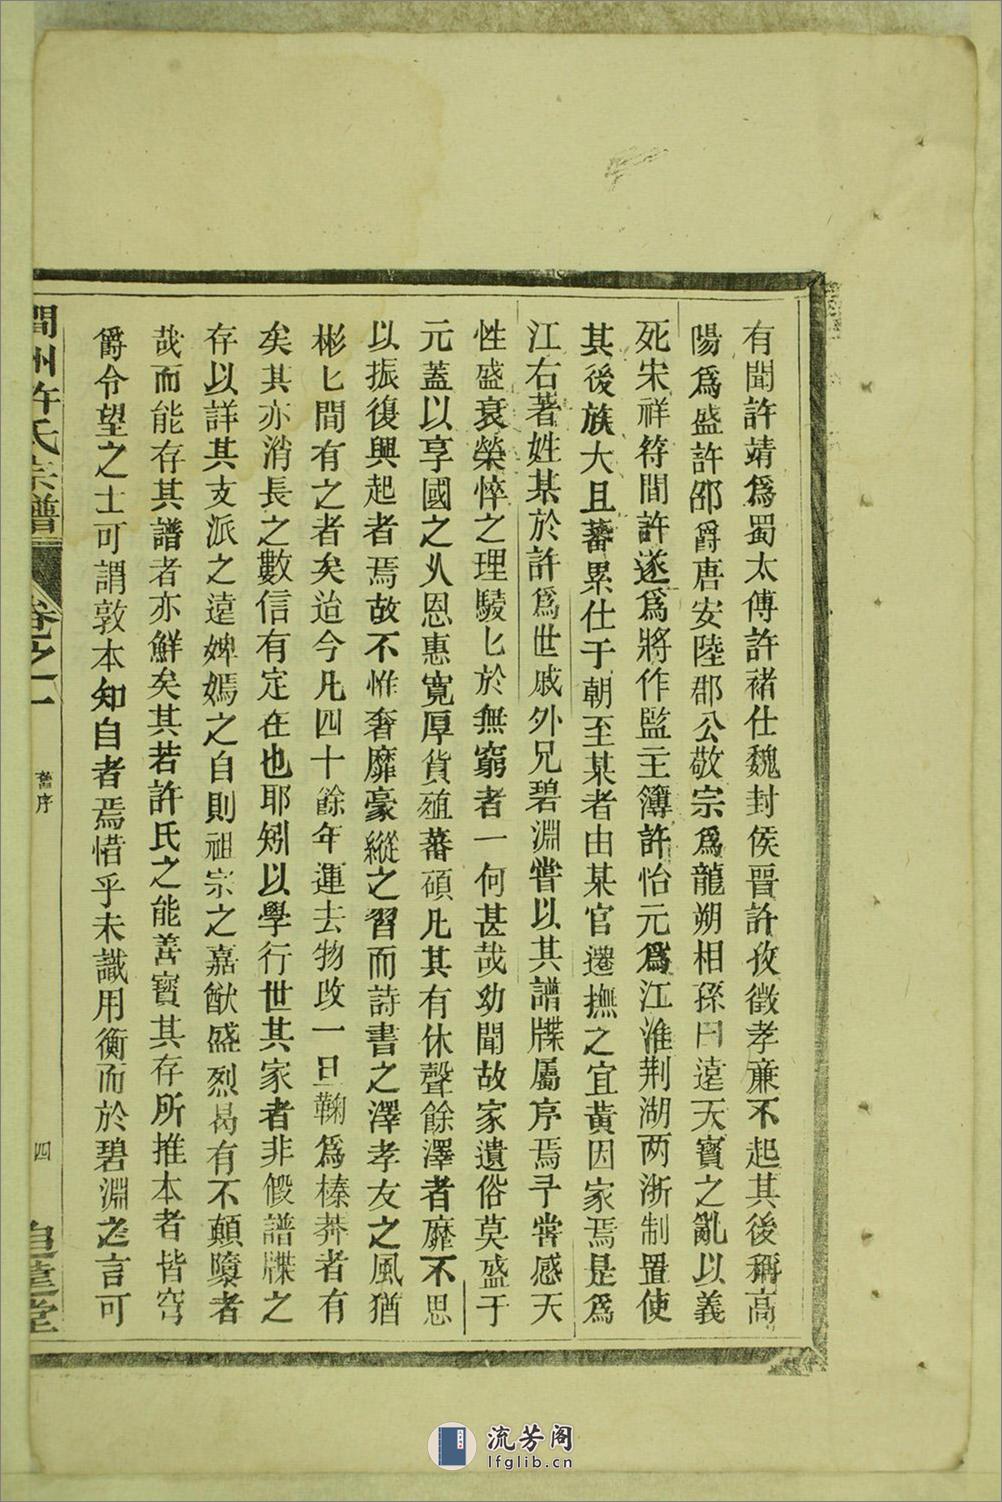 有聞許靖爲蜀太傅許褚仕魏封侯晉許孜徵孝廉不起其後稱高
陽爲盛許邵爵唐安陸郡公敬宗爲龍朔相孫曰遠天寶之亂以義
死宋祥符間許遂爲將作監主簿許怡元爲江淮荆湖两浙制置使
其後族大且蕃累仕于朝至某者由某官遷撫之宜黄因家焉是爲
江右著姓某於許爲世戚外兄碧淵嘗以其譜牒屬序焉予嘗感天
性盛衰榮悴之理駸匕於無窮者一何甚哉幼聞故家遺俗莫盛于
元蓋以享國之久恩惠寛厚貨殖蕃碩凡其有休聲餘澤者靡不思
以振復興起者焉故不惟奢靡豪縱之習而詩書之澤孝友之風猶
彬匕間有之者矣迨今凡四十餘年運去物改一旦鞠爲榛莽者有
矣其亦消長之數信有定在也耶矧以學行世其家者非假譜牒之
存以詳其支派之遠婢嫣之自則祖宗之嘉猷盛烈曷有不顛隳者
哉而能存其譜者亦鮮矣其若許氏之能善寳其存所推本者皆穹
爵令望之士可謂敦本知自者焉惜乎未識用衡而於碧淵之言可
澗州許氏宗譜 卷之一 舊序 四
流芳阁
lfglib.cn